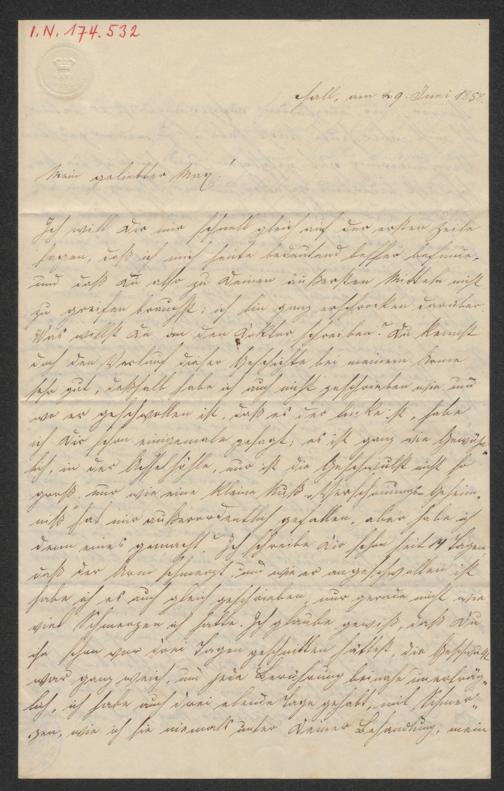 I.N. 174.532
Hall, am 29. Juni 1858
Mein geliebter Max!
Ich will Dir nur schnell gleich auf der ersten Zeile
sagen, daß ich mich heute bedeutend besser befinde,
und daß Du also zu Deinen äußersten Mitteln nicht
zu greifen brauchst; ich bin ganz erschrocken darüber.
Was willst Du an den Doktor schreiben? Du kennst
doch den Verlauf dieser Geschichte bei meinem Arme
sehr gut; deßhalb habe ich auch nicht geschrieben wie und
wo er geschwollen ist, daß es der linke ist, habe
ich Dir schon einigemale gesagt; es ist ganz wie gewöhn-
lich, in der Achselhöhle, nur ist die Geschwulst nicht so
groß, nur wie eine kleine Nuß.
niß hat mir außerordentlich gefallen, aber habe ich
denn eines gemacht? Ich schreibe Dir schon seit 14 Tagen
daß der Arm schmerzt, und wie er angeschwollen ist
habe ich es auch gleich geschrieben, nur gerade nicht wie
viel Schmerzen ich hatte. Ich glaube gewiß, daß Du
ihn schon vor drei Tagen geschnitten hättest, die Geschwulst
war ganz weich, und jede Berührung beinahe unerträg-
lich, ich habe auch drei elende Tage gehabt, mit Schmer-
zen, wie ich sie niemals unter Deiner Behandlung, mein